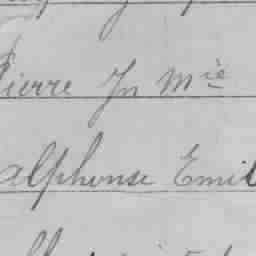 Pierre Jn Mie
Alphonse Emil